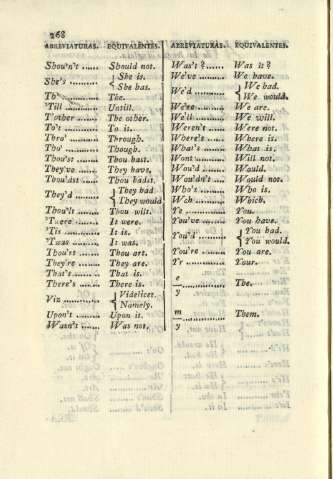 268
ABREVIATURAS. EQUIVALENTES.
Shou'n't ....... Should not.
She's ........... { She is.
She has.
Th' .............. The.
'Till ............ Untill.
T'other ........ The other.
To't ............. To it.
Thro' ........... Through.
Tho' ............. Though.
Thou'st ........ Thou hast.
They've ....... They have.
Thou'dst ...... Thou hadst.
They'd ......... { They had
They would
Thou'lt ........ Thou wilt.
'Twere ......... It were.
'Tis .............. It is.
'Twas ........... It was.
Thou'rt ........ Thou art.
They're ........ They are.
That's .......... That is.
There's ........ There is.
Viz .............. { Videlicet.
Namely.
Upon't ......... Upon it.
Wasn't ......... Was not.
ABREVIATURAS. EQUIVALENTES.
Was't ? ........ Was it ?
We've .......... We have.
We'd ........... { We had.
We would.
We're .......... We are.
We'll ........... We will.
Weren't ....... Were not.
Where's ....... Where is.
What's ......... What is.
Wont ........... Will not.
Wou'd .......... Would.
Wou'dn't ...... Would not.
Who's .......... Who is.
Wch ............. Which.
Ye ............... You.
You've ......... You have.
You'd .......... { You had.
You would.
You're ......... You are.
Yr ............... Your.
e
y ............... The.
m
y ............... Them.